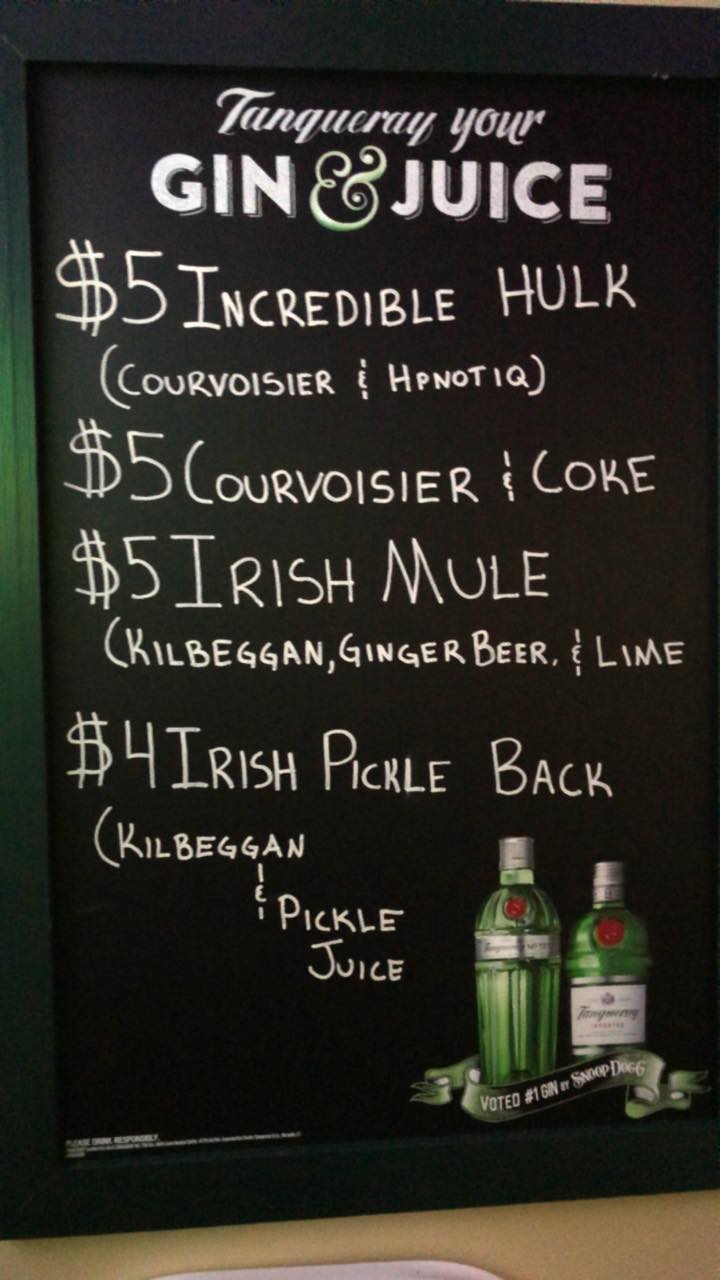 Tanqueray your
GIN & JUICE
$5 INCREDIBLE HULK
(COURVOISIER & HPNOTIQ)
$5 COURVOISIER & COKE
$5 IRISH MULE
(KILBEGGAN, GINGER BEER, & LIME
$4 IRISH PICKLE BACK
(KILBEGGAN
&
PICKLE
JUICE
Tanqueray
Tanqueray
IMPORTED
VOTED #1 GIN BY SNOOP DOGG
PLEASE DRINK RESPONSIBLY.